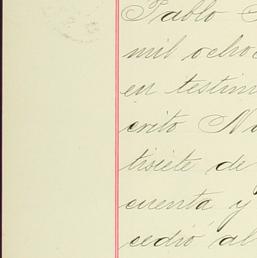 Pablo
mil ocho
en testim
crito No
tisiete de
cuenta y
cedió al